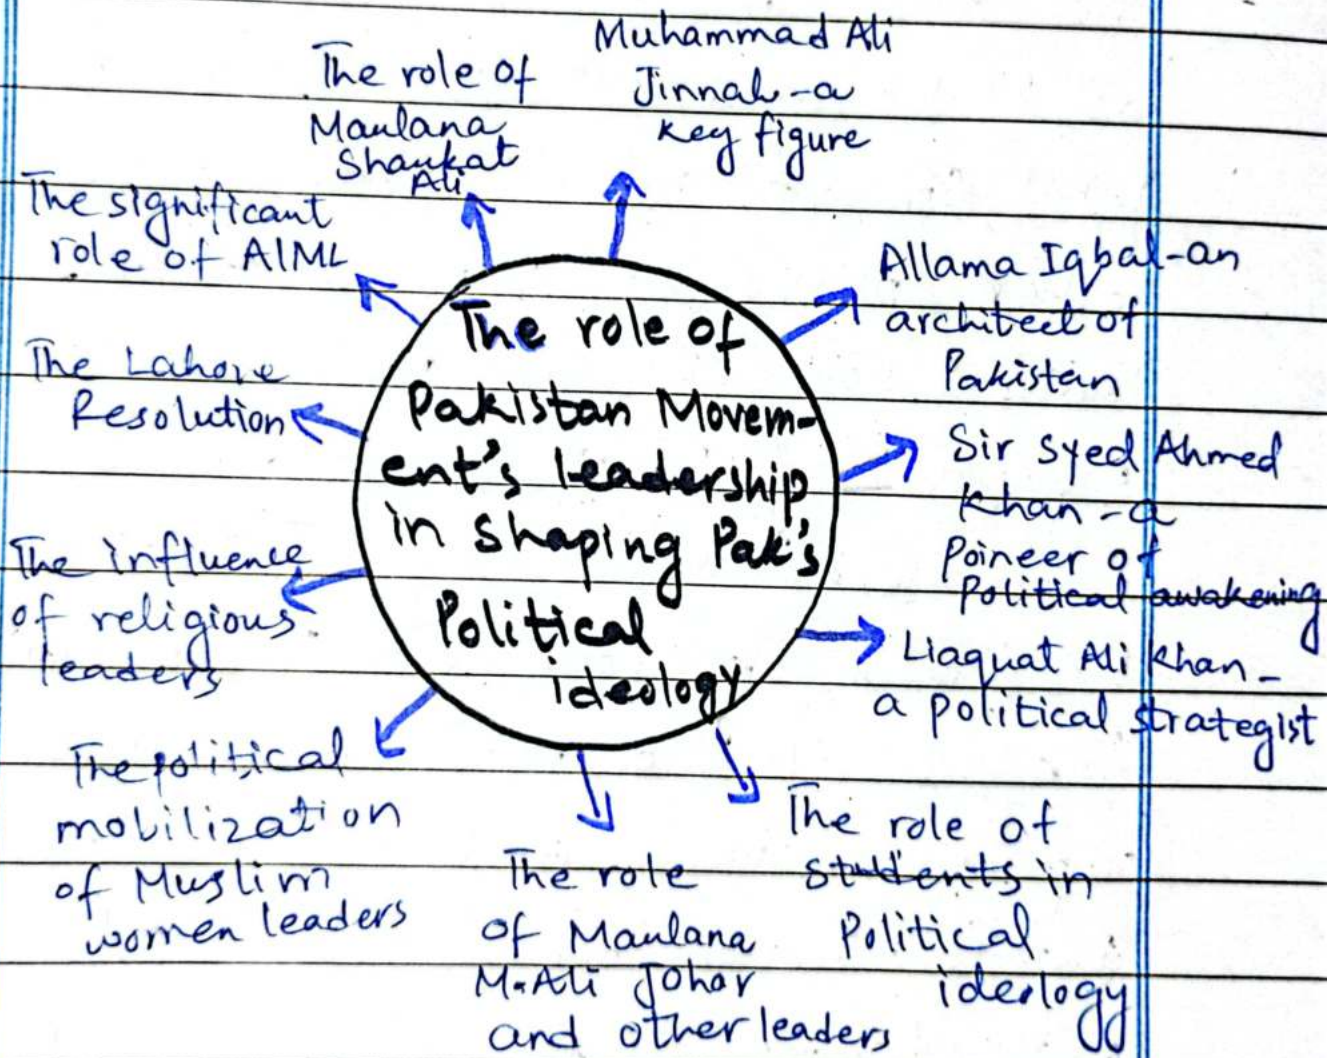 The role of
Pakistan Movem-
ent's leadership
in shaping Pak's
Political
ideology
Muhammad Ali
Jinnah - a
key figure
Allama Iqbal - an
architect of
Pakistan
Sir Syed Ahmed
Khan - a
Poineer of
Political awakening
Liaquat Ali Khan -
a political strategist
The role of
students in
Political
ideology
The role
of Maulana
M. Ali Johar
and other leaders
The political
mobilization
of Muslim
women leaders
The influence
of religious
leaders
The Lahore
Resolution
The significant
role of AIML
The role of
Maulana
Shaukat
Ali